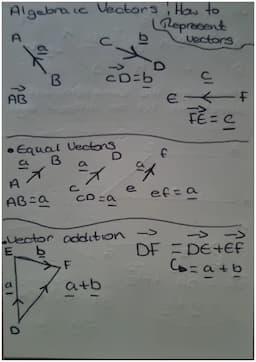 Algebraic Vectors; How to
Represent
Vectors
A a B
AB
C b D
CD = b
c
E F
FE = c
• Equal Vectors
a B a D a f
A C e
AB = a CD = a ef = a
• Vector addition
E b F
a
D
a + b
DF = DE + EF
= a + b